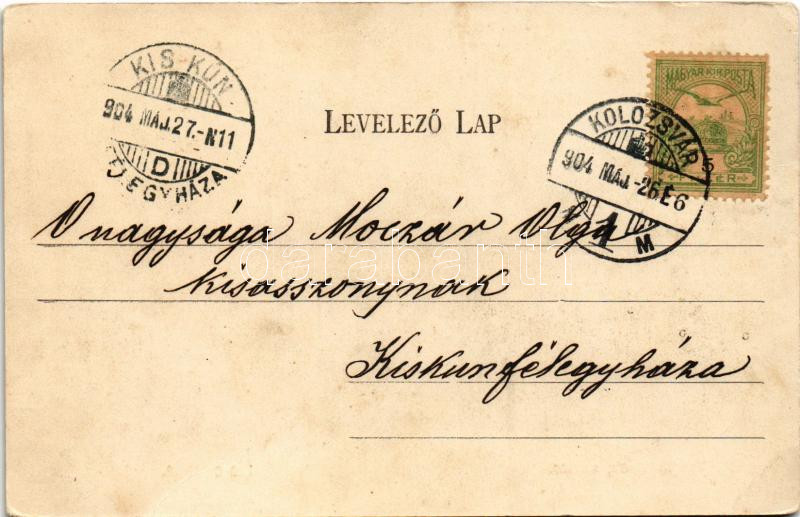 KIS-KUN-
904 MAJ.27.-N11
D
FÉLEGYHÁZA
LEVELEZŐ LAP
MAGYAR KIR. POSTA
5
KOLOZSVÁR
904 MÁJ.-26.E6
1
M
Ő nagysága Moczár Olga
kisasszonynak
Kiskunfélegyháza
darabanth